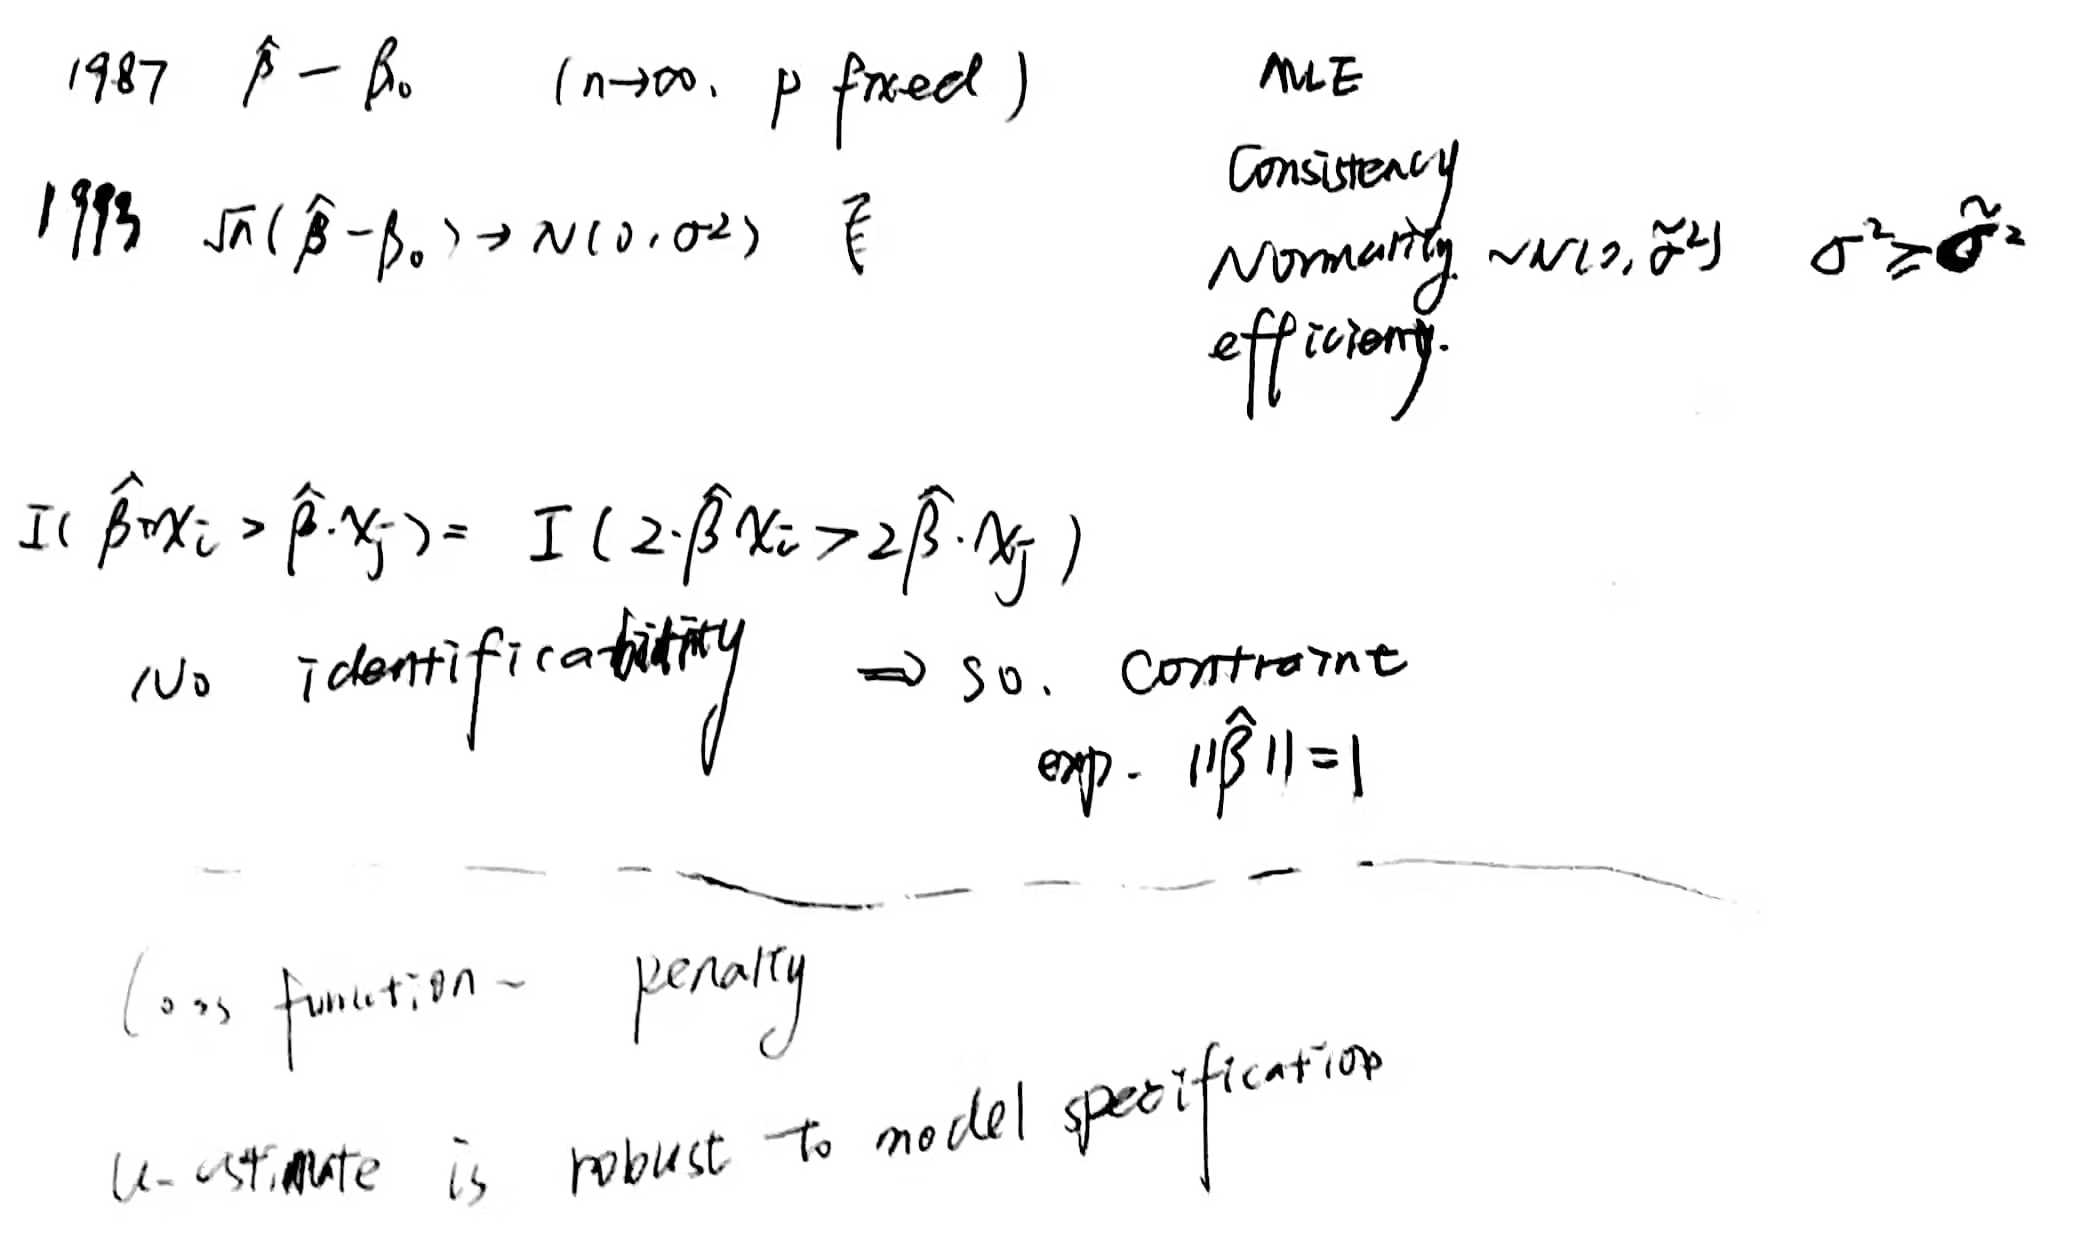 1987 β̂ − β₀ (n→∞, p fixed) MLE
Consistency
1993 √n(β̂−β₀)→N(0,σ²)
Normality ~N(0,σ̃²) σ²≥σ̃²
efficiency.
I(β̂·xᵢ > β̂·xⱼ) = I(2·β̂xᵢ > 2β̂·xⱼ)
No identificability ⇒ so. Contrainte
exp. ||β̂||=1
loss function - penalty
u-estimate is robust to model specification